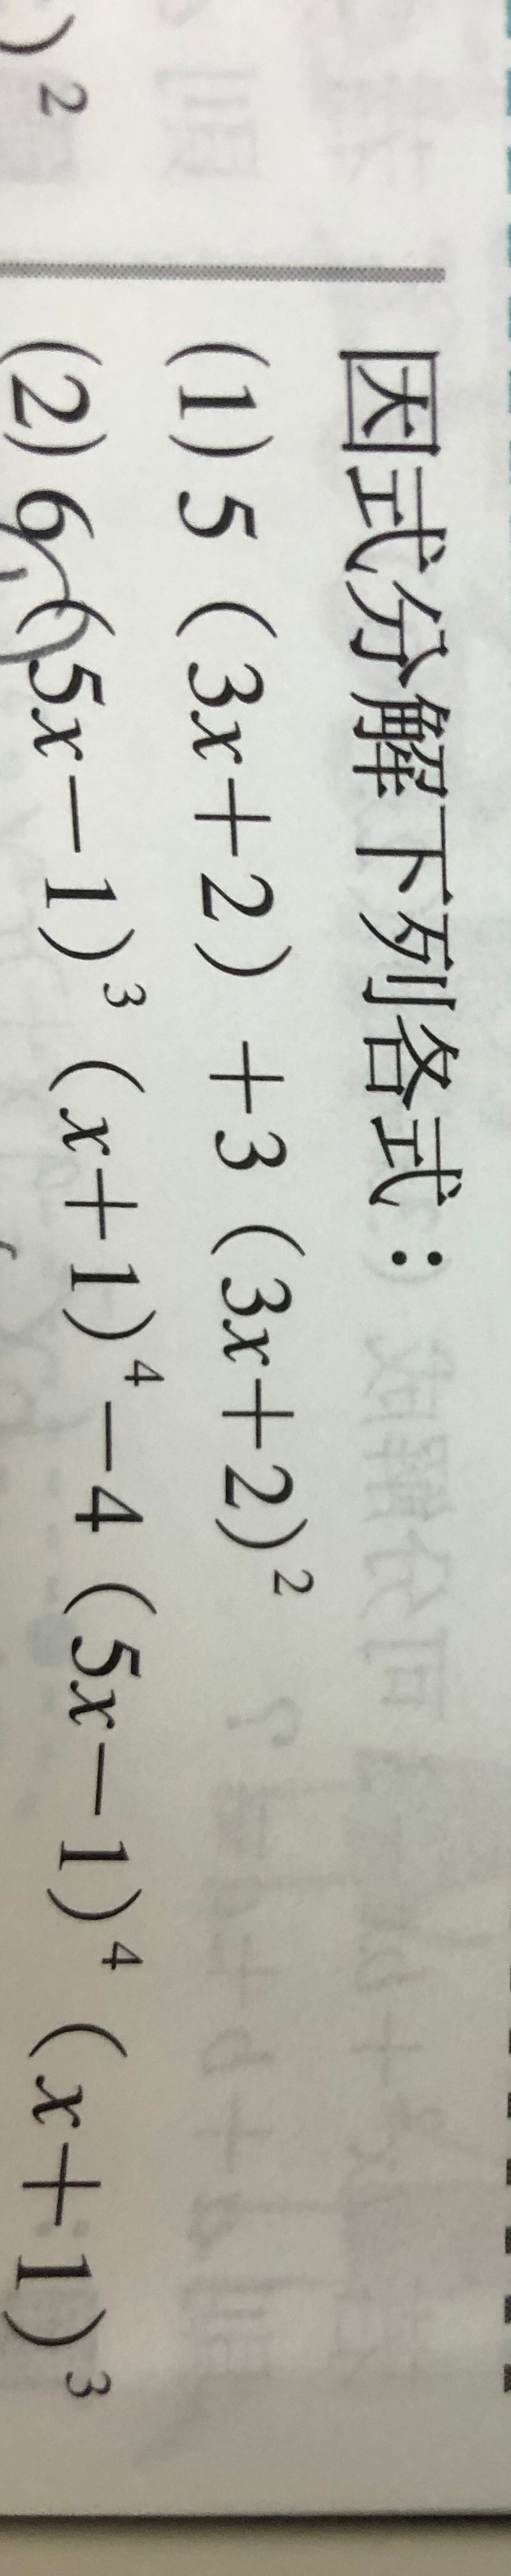 )²
因式分解下列各式：
(1) 5（3x＋2）＋3（3x＋2)²
(2) 6（5x－1)³（x＋1)⁴－4（5x－1)⁴（x＋1)³